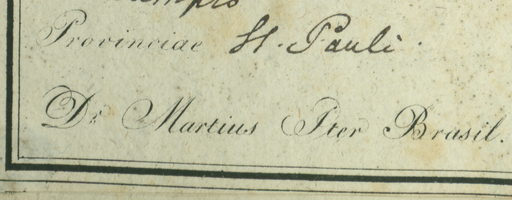 Provinciae St. Pauli
Dr. Martius Iter Brasil.